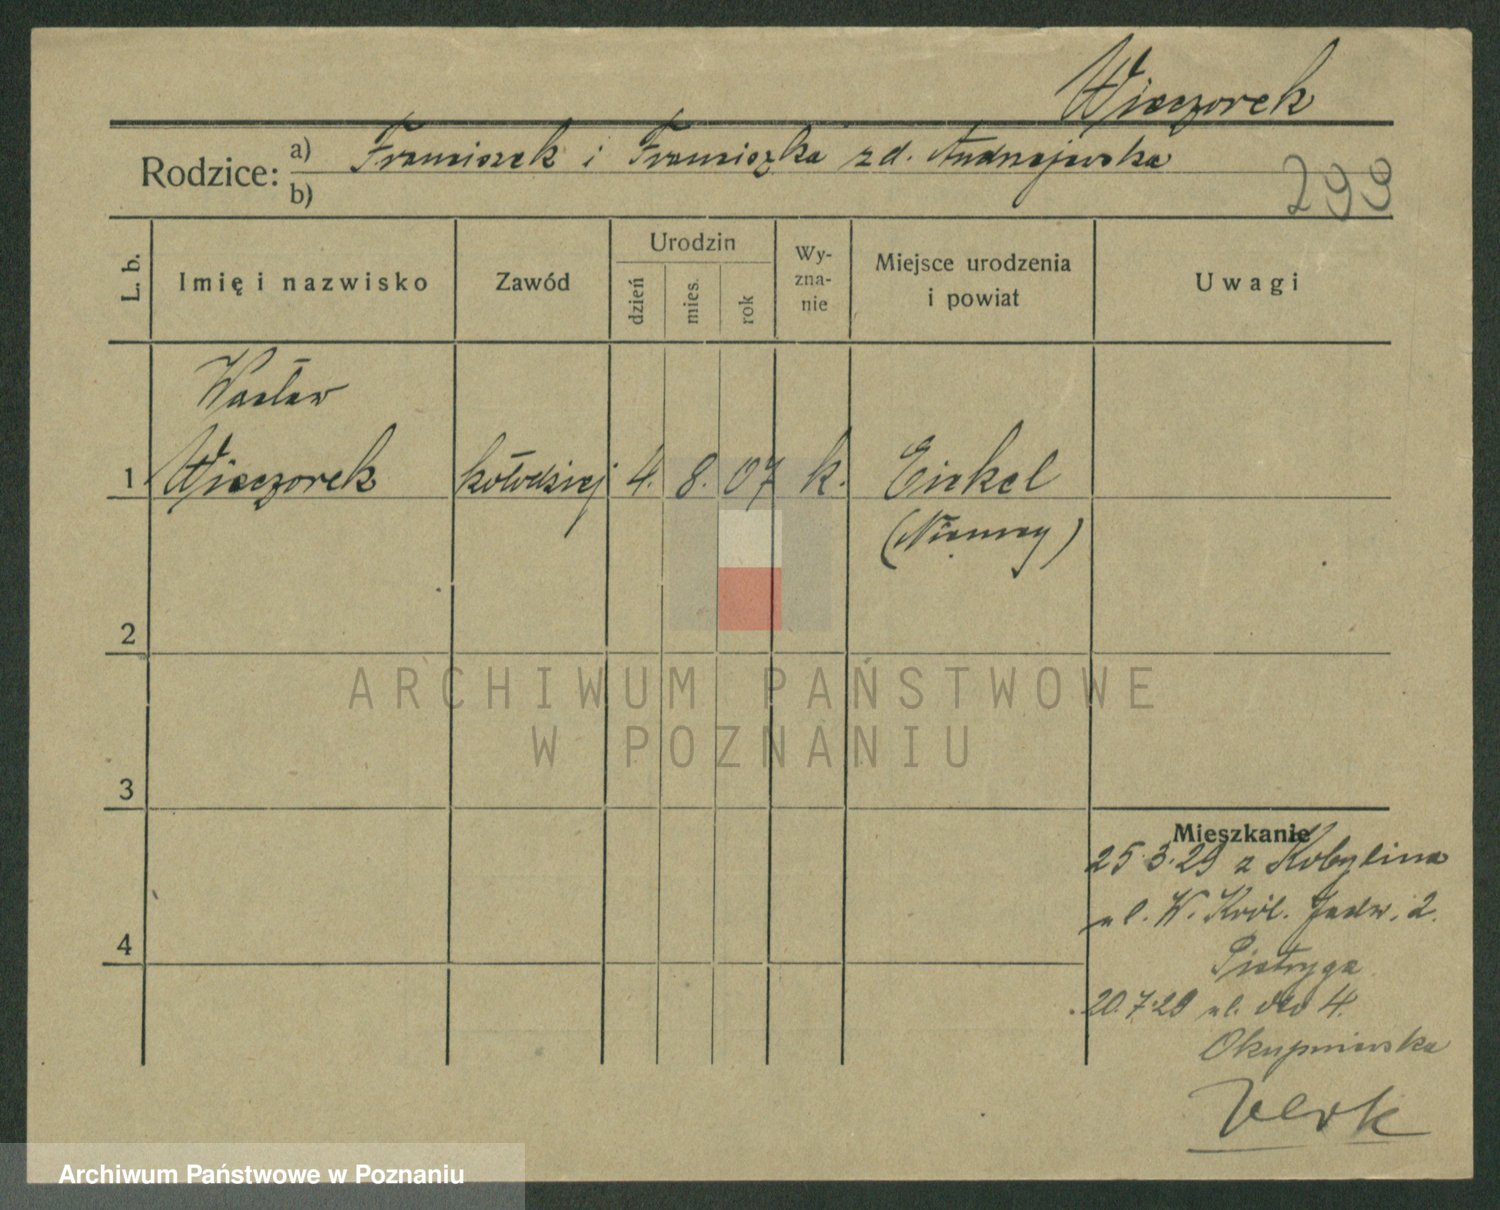 Wieczorek
Rodzice: a) Franciszek i Franciszka zd. Andrzejewska
b)
299
L. b.
Imię i nazwisko
Zawód
Urodzin
dzień
mies.
rok
Wy-
zna-
nie
Miejsce urodzenia
i powiat
Uwagi
Wacław
1 Wieczorek kołodziej 4. 8. 07 k. Eickel
(Niemcy)
2
3
4
Mieszkanie
25.3.29 z Kobylina
ul. W. Król. Jadw. 2.
Pietryga
20.7.29 ul. dto 4.
Okupniewska
ARCHIWUM PAŃSTWOWE
W POZNANIU
Archiwum Państwowe w Poznaniu